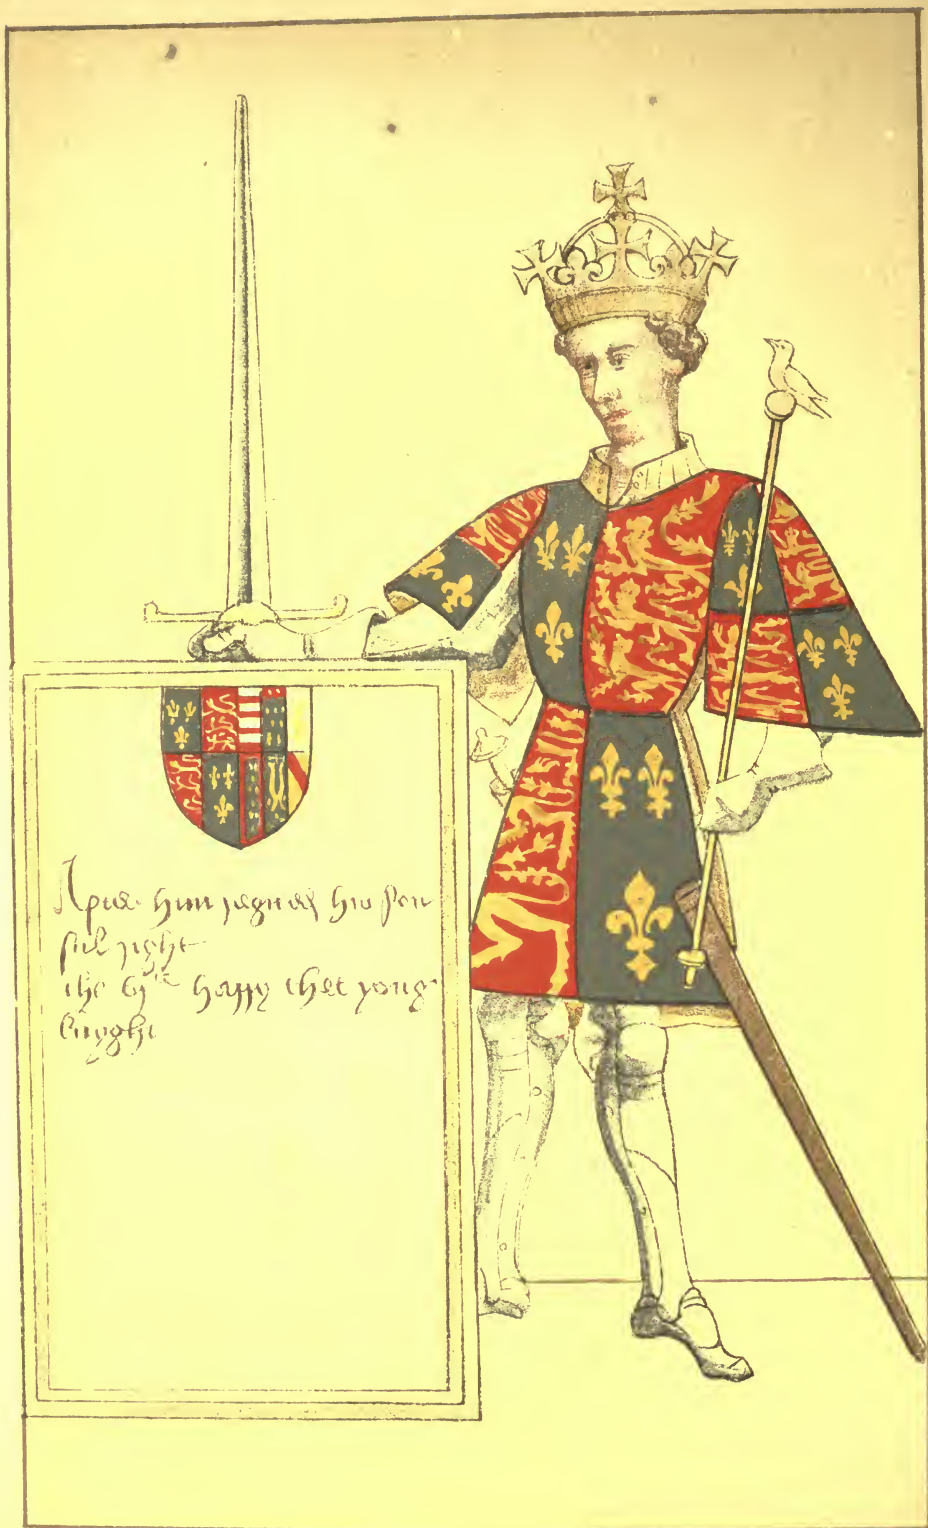 After him regned his son
ful right
the vj<sup>te</sup> happy that yong
knyght